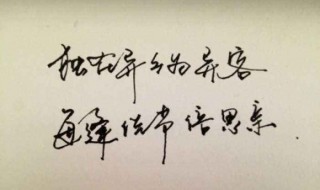 独在异乡为异客
每逢佳节倍思亲.